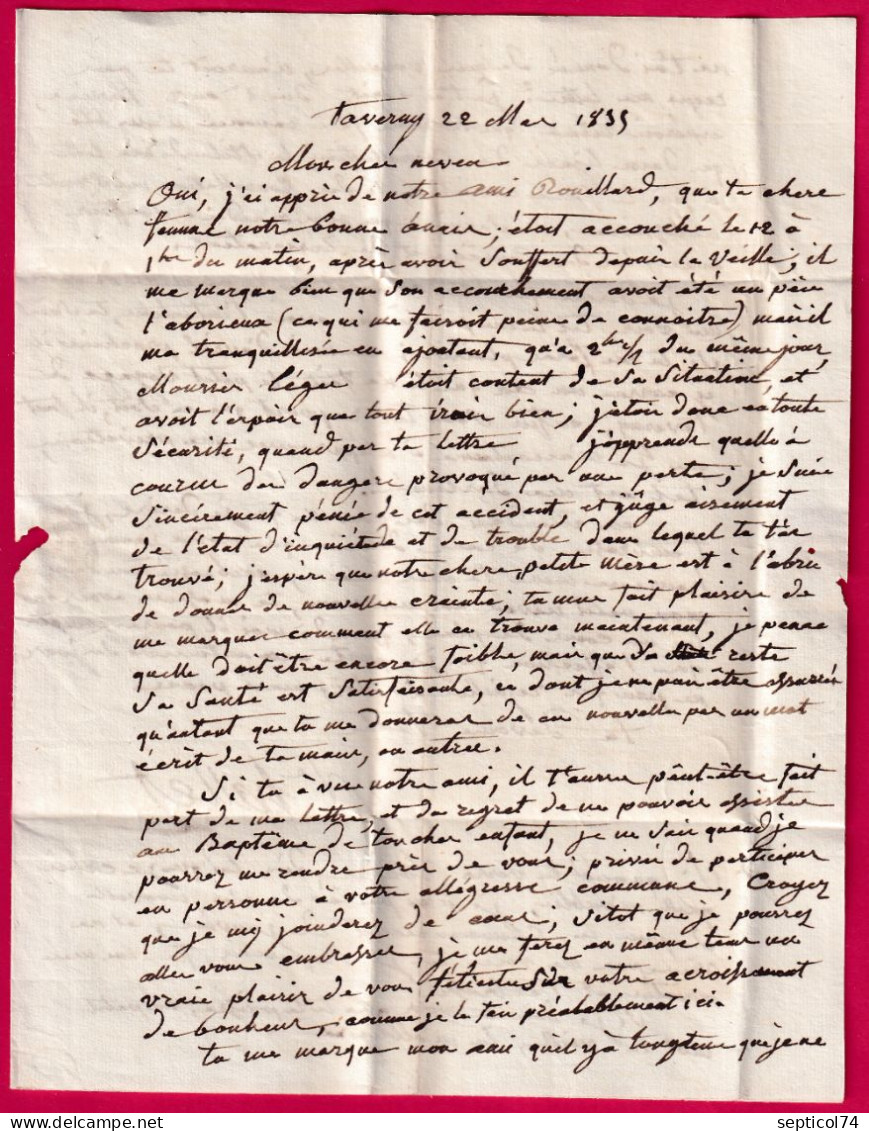 Taverny 22 Mai 1835
Mon cher neveu
Oui, j'ai appris de notre ami Rouillard, que ta chere
femme notre bonne anais; étoit accouché le 12 à
1hre du matin, après avoir souffert depuis la veille; il
me marque bien que son accouchement avoit été un peu
l'aborieux (ce qui me faisoit peine de connoitre) mais il
ma tranquillisée en ajoutant, qu'a 2hes 1/2 du même jour,
Monsieur léger étoit content de sa situation, et
avoit l'espoir que tout irais bien; j'étois donc en toute
sécurité, quand par ta lettre j'opprends quelle à
courue des dangers provoqué par une perte; je suis
sincèrement pénée de cet accident, et jûge aisement
de l'état d'inquiétude et de trouble dans lequel tu t'es
trouvé; j'espère que notre chere petite mère est à l'abris
de donner de nouvelles crainte; tu me fait plaisire de
me marquer comment elle ce trouve maintenant, je pense
quelle doit être encore foible, mais que du reste
sa santé est satisfaisante, ce dont je ne puis être assurée
qu'autant que tu me donneras de ces nouvelles par un mot
écrit de ta main, ou autres.
Si tu à vue notre ami, il t'aura pêut-être fait
part de ma lettre, et du regret de ne pouvoir assister
au Baptème de ton cher enfant, je ne sais quand je
pourrez me rendre près de vous; privée de participer
en personne à votre allégresse commune, Croyez
que je m'y joinderez de cœur; sitot que je pourrez
aller vous embrasser, je me ferez en même tems un
vraie plaisir de vous féliciter sur votre acroissement
de bonheur, comme je le fais préalablement ici.
tu me marque mon ami qu'il y à longtems que je ne
septicol74